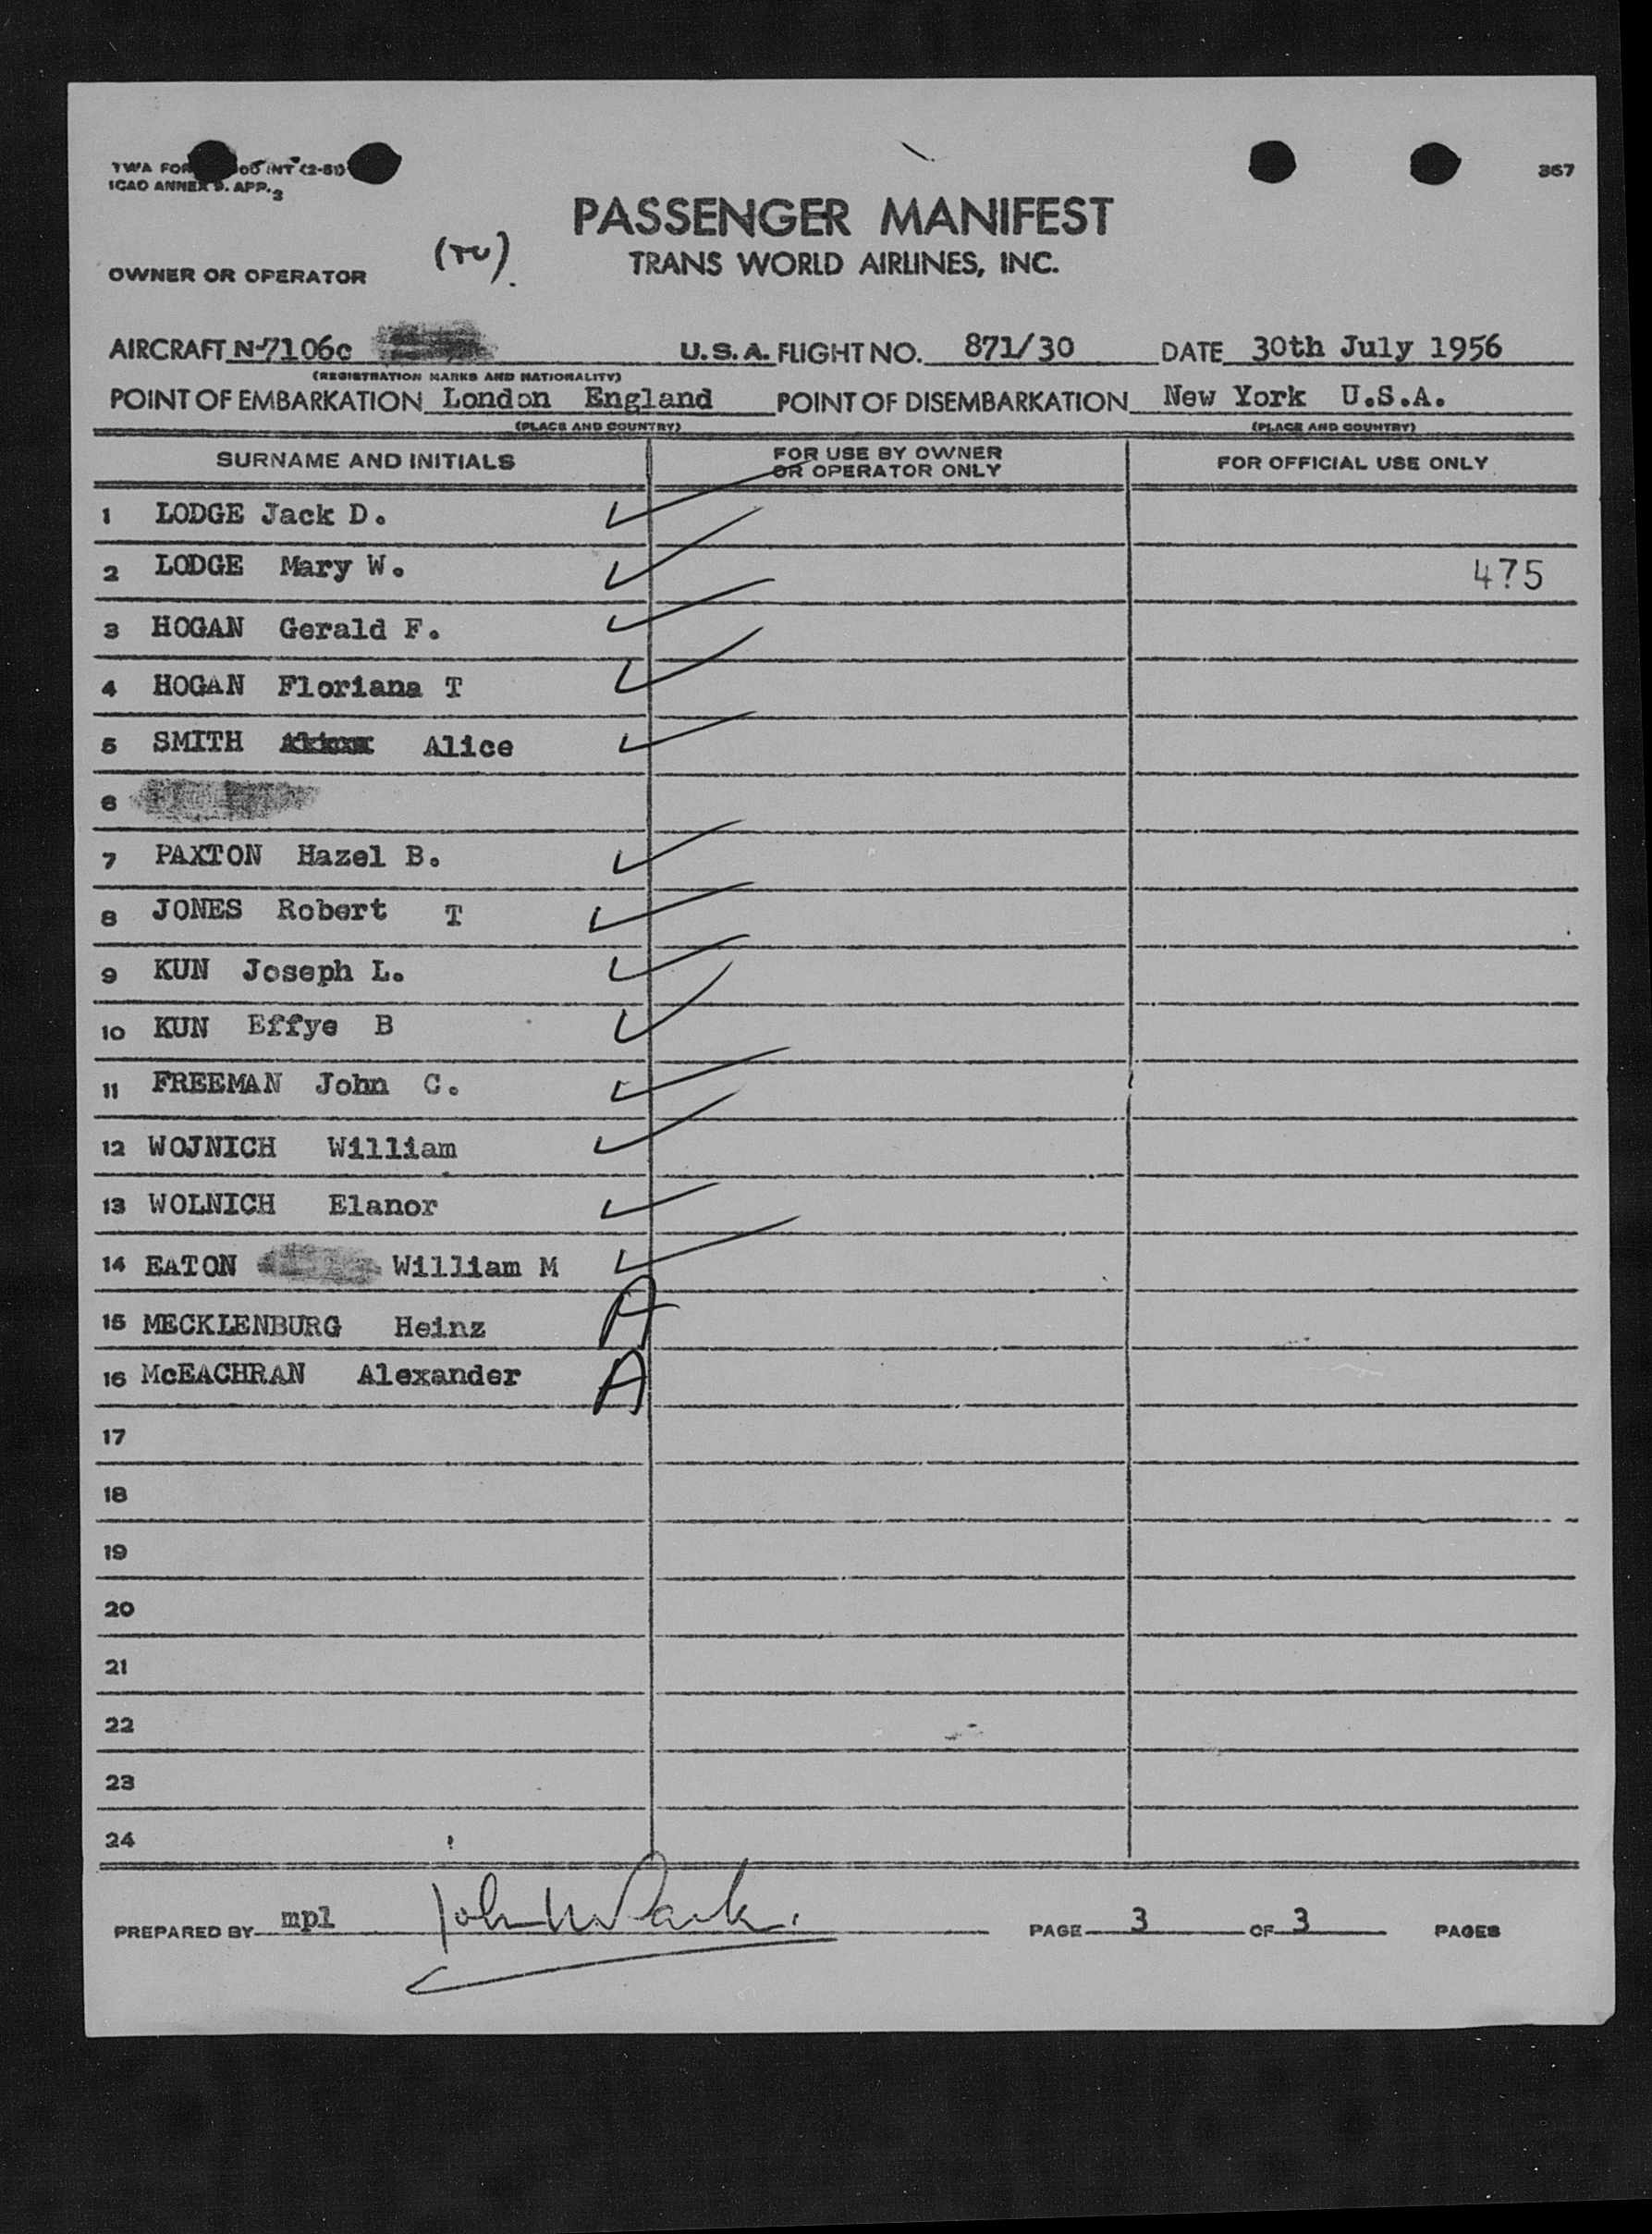 TWA FOR INT (2-51)
367
ICAO ANNEX 9. APP. 2
PASSENGER MANIFEST
(TU).
TRANS WORLD AIRLINES, INC.
OWNER OR OPERATOR
AIRCRAFT N-7106c U.S.A. FLIGHT NO. 871/30 DATE 30th July 1956
(REGISTRATION MARKS AND NATIONALITY)
POINT OF EMBARKATION London England POINT OF DISEMBARKATION New York U.S.A.
(PLACE AND COUNTRY) (PLACE AND COUNTRY)
SURNAME AND INITIALS FOR USE BY OWNER OR OPERATOR ONLY FOR OFFICIAL USE ONLY
1 LODGE Jack D.
2 LODGE Mary W. 475
3 HOGAN Gerald F.
4 HOGAN Floriana T
5 SMITH Alice
6
7 PAXTON Hazel B.
8 JONES Robert T
9 KUN Joseph L.
10 KUN Effye B
11 FREEMAN John C.
12 WOJNICH William
13 WOLNICH Elanor
14 EATON William M
15 MECKLENBURG Heinz A
16 McEACHRAN Alexander A
17
18
19
20
21
22
23
24
PREPARED BY mpl John PAGE 3 OF 3 PAGES